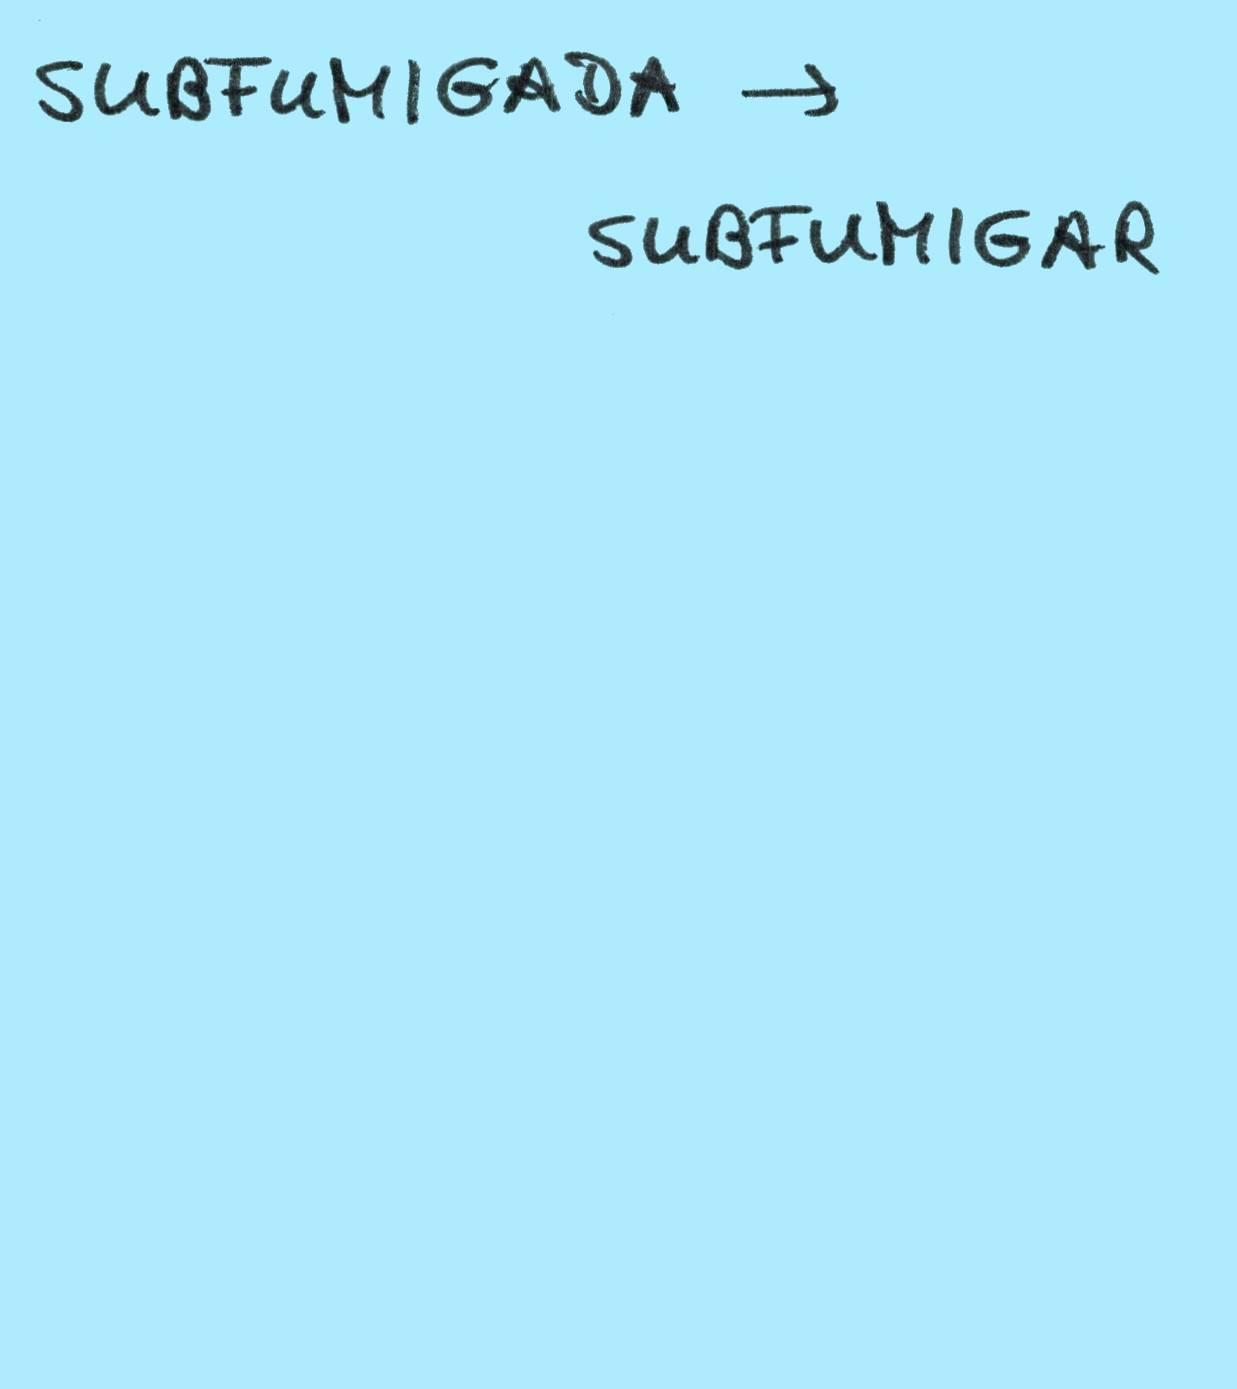 SUBFUMIGADA →
SUBFUMIGAR